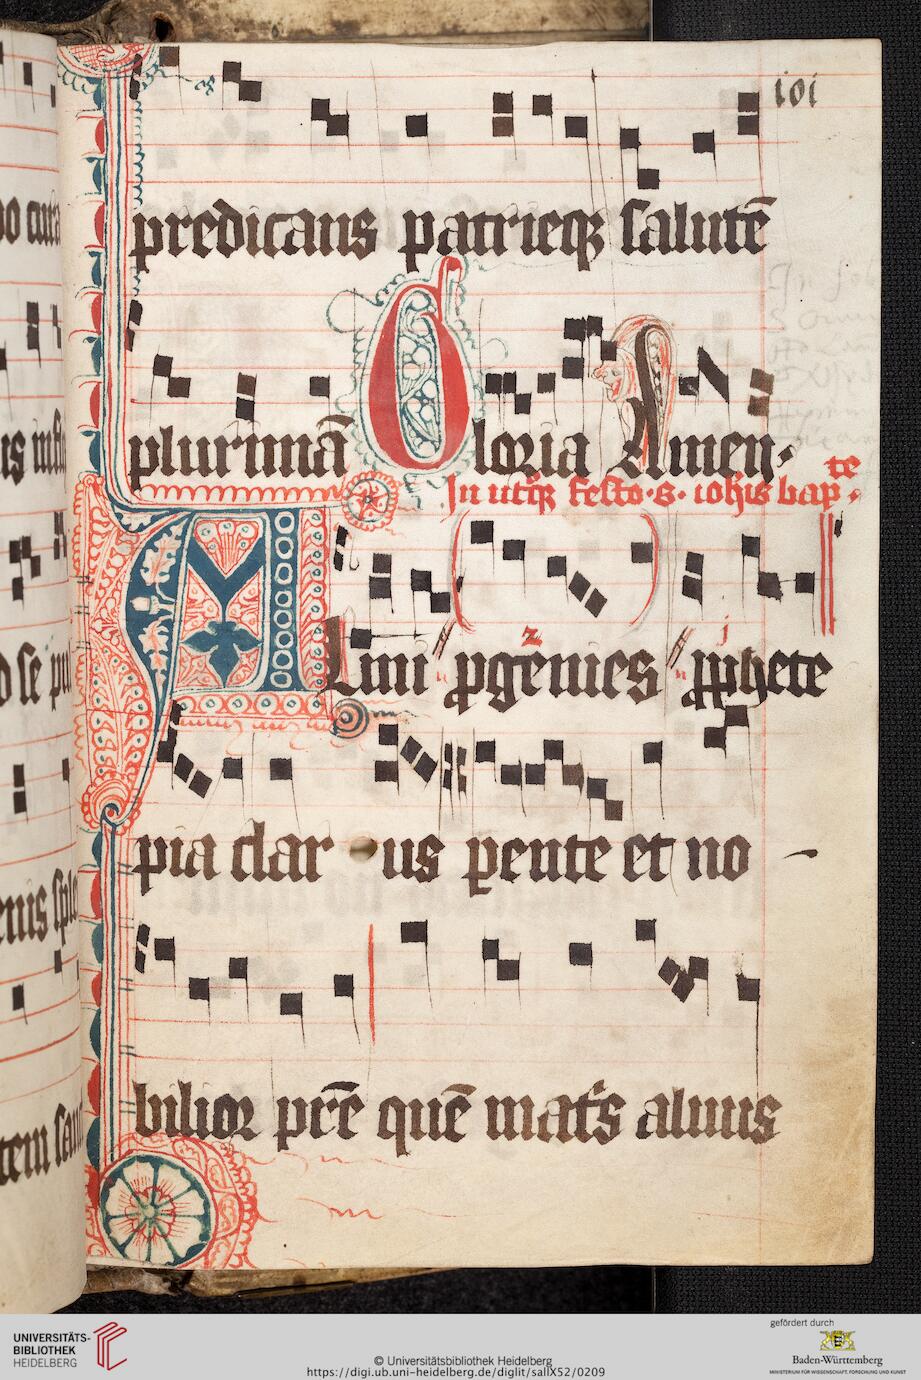 101
predicans patrieqꝫ salutē
plurimā Gloria Amen
In utqꝫ festo · s · ioħis bapte
Almi ꝓgēnies ꝓphete
pia clar us pente et no
bilior pr̄e quē mat̾s aluus
UNIVERSITÄTS-
BIBLIOTHEK
HEIDELBERG
© Universitätsbibliothek Heidelberg
https://digi.ub.uni-heidelberg.de/diglit/salIX52/0209
gefördert durch
Baden-Württemberg
MINISTERIUM FÜR WISSENSCHAFT, FORSCHUNG UND KUNST